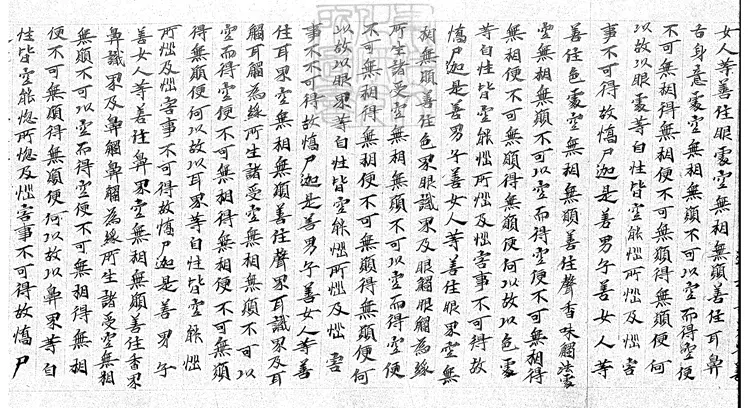 女人等善住眼處空無相無願善住耳鼻
舌身意處空無相無願不可以空而得空便
不可無相得無相便不可無願得無願便何
以故以眼處等自性皆空能惱所惱及惱害
事不可得故憍尸迦是善男子善女人等
善住色處空無相無願善住聲香味觸法處
空無相無願不可以空而得空便不可無相得
無相便不可無願得無願便何以故以色處
等自性皆空能惱所惱及惱害事不可得故
憍尸迦是善男子善女人等善住眼界空無
相無願善住色界眼識界及眼觸眼觸為緣
所生諸受空無相無願不可以空而得空便
不可無相得無相便不可無願得無願便何
以故以眼界等自性皆空能惱所惱及惱害
事不可得故憍尸迦是善男子善女人等善
住耳界空無相無願善住聲界耳識界及耳
觸耳觸為緣所生諸受空無相無願不可以
空而得空便不可無相得無相便不可無願
得無願便何以故以耳界等自性皆空能惱
所惱及惱害事不可得故憍尸迦是善男子
善女人等善住鼻界空無相無願善住香界
鼻識界及鼻觸鼻觸為緣所生諸受空無相
無願不可以空而得空便不可無相得無相
便不可無願得無願便何以故以鼻界等自
性皆空能惱所惱及惱害事不可得故憍尸